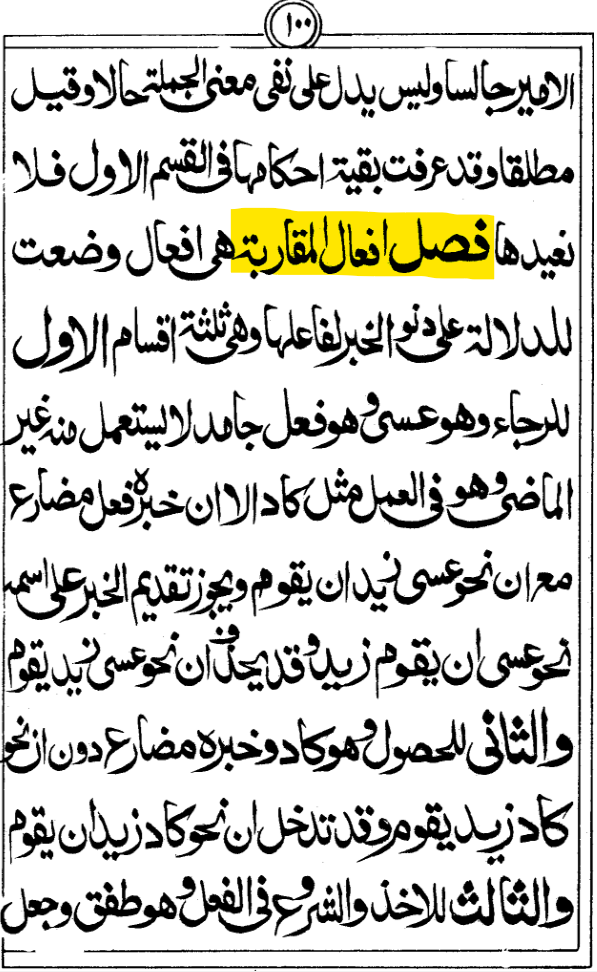 ١٠٠
الامير جالسا وليس يدل على نفى معنى الجملة حالا وقيل
مطلقا وقد عرفت بقية احكامها فى القسم الاول فلا
نعيدها فصل افعال المقاربة هى افعال وضعت
للدلالة على دنو الخبر لفاعلها وهى ثلثة اقسام الاول
للرجاء وهو عسى وهو فعل جامد لا يستعمل منه غير
الماضى وهو فى العمل مثل كاد الا ان خبره فعل مضارع
مع ان نحو عسى زيد ان يقوم ويجوز تقديم الخبر على اسمه
نحو عسى ان يقوم زيد وقد يحذف ان نحو عسى زيد يقوم
والثانى للحصول وهو كاد وخبره مضارع دون ان نحو
كاد زيد يقوم وقد تدخل ان نحو كاد زيد ان يقوم
والثالث للاخذ والشروع فى الفعل وهو طفق وجعل